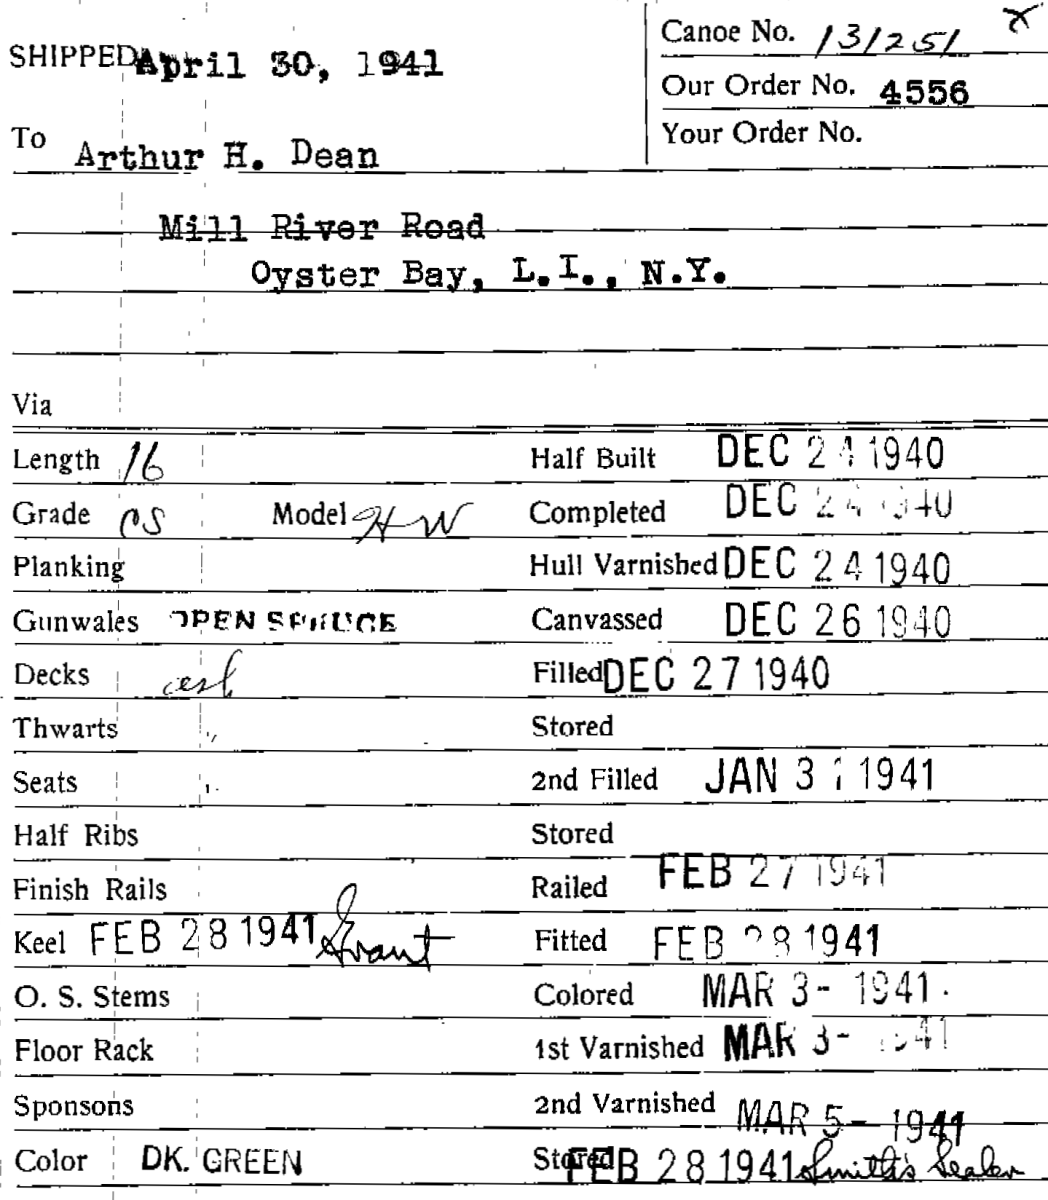 SHIPPED April 30, 1941
Canoe No. 131251
Our Order No. 4556
Your Order No.
To Arthur H. Dean
Mill River Road
Oyster Bay, L.I., N.Y.
Via
Length 16
Half Built DEC 24 1940
Grade CS Model HW
Completed DEC 24 1940
Planking
Hull Varnished DEC 24 1940
Gunwales OPEN SPRUCE
Canvassed DEC 26 1940
Decks ash
Filled DEC 27 1940
Thwarts "
Stored
Seats "
2nd Filled JAN 31 1941
Half Ribs
Stored
Finish Rails
Railed FEB 27 1941
Keel FEB 28 1941 Grant
Fitted FEB 28 1941
O. S. Stems
Colored MAR 3- 1941
Floor Rack
1st Varnished MAR 3- 1941
Sponsons
2nd Varnished MAR 5- 1941
Color DK. GREEN
Stored FEB 28 1941 Smith's Sealer